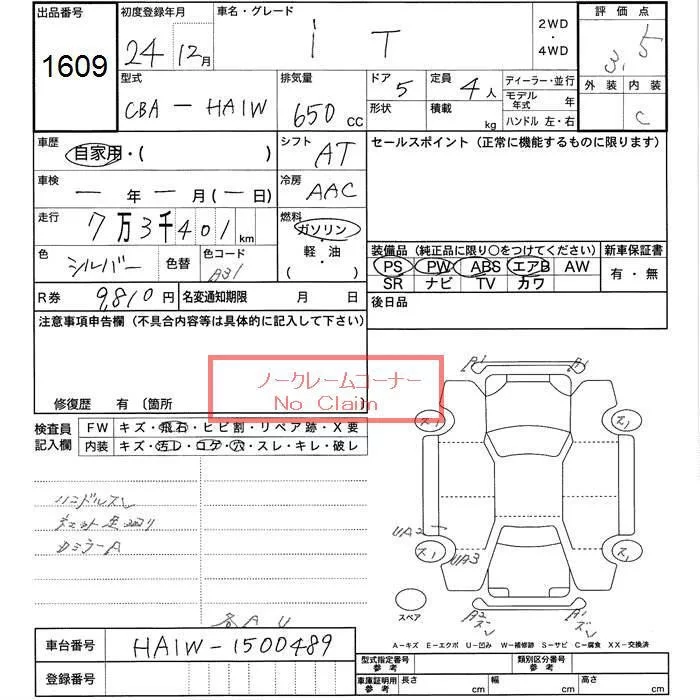 出品番号
1609
初度登録年月
24 12月
車名・グレード
i T
2WD
・
4WD
評価点
3.5
外装 内装
C
型式
CBA - HA1W
排気量
650 CC
ドア 5
形状
定員 4人
積載 kg
ディーラー・並行
モデル年式 年
ハンドル 左・右
車歴
自家用・( )
シフト AT
セールスポイント (正常に機能するものに限ります)
車検
ー 年 ー 月 (ー日)
冷房 AAC
走行
7万3千401 km
燃料
ガソリン
軽・油
( )
色
シルバー
色替
色コード
A31
装備品 (純正品に限り○をつけてください)
新車保証書
PS PW ABS エアB AW
有・無
SR ナビ TV カワ
R券 9,810円
名変通知期限 月 日
後日品
注意事項申告欄 (不具合内容等は具体的に記入して下さい)
ノークレームコーナー
No Claim
修復歴 有 〔箇所 〕
検査員
記入欄
FW キズ・飛石・ヒビ割・リペア跡・X要
内装 キズ・汚レ・コゲ・穴・スレ・キレ・破レ
ハンドルスレ
カミラーA
各A U
A1 A1
ス1 ス1
UA2
ス1 UA3 ス1
スペア
A2 A1
ズン ズン
A－キズ E－エクボ U－凹み W－補修跡 S－サビ C－腐食 XX－交換済
車台番号 HA1W-1500489
登録番号
型式指定番号
参考
類別区分番号
参考
車庫証明用
参考
長さ cm 幅 cm 高さ cm